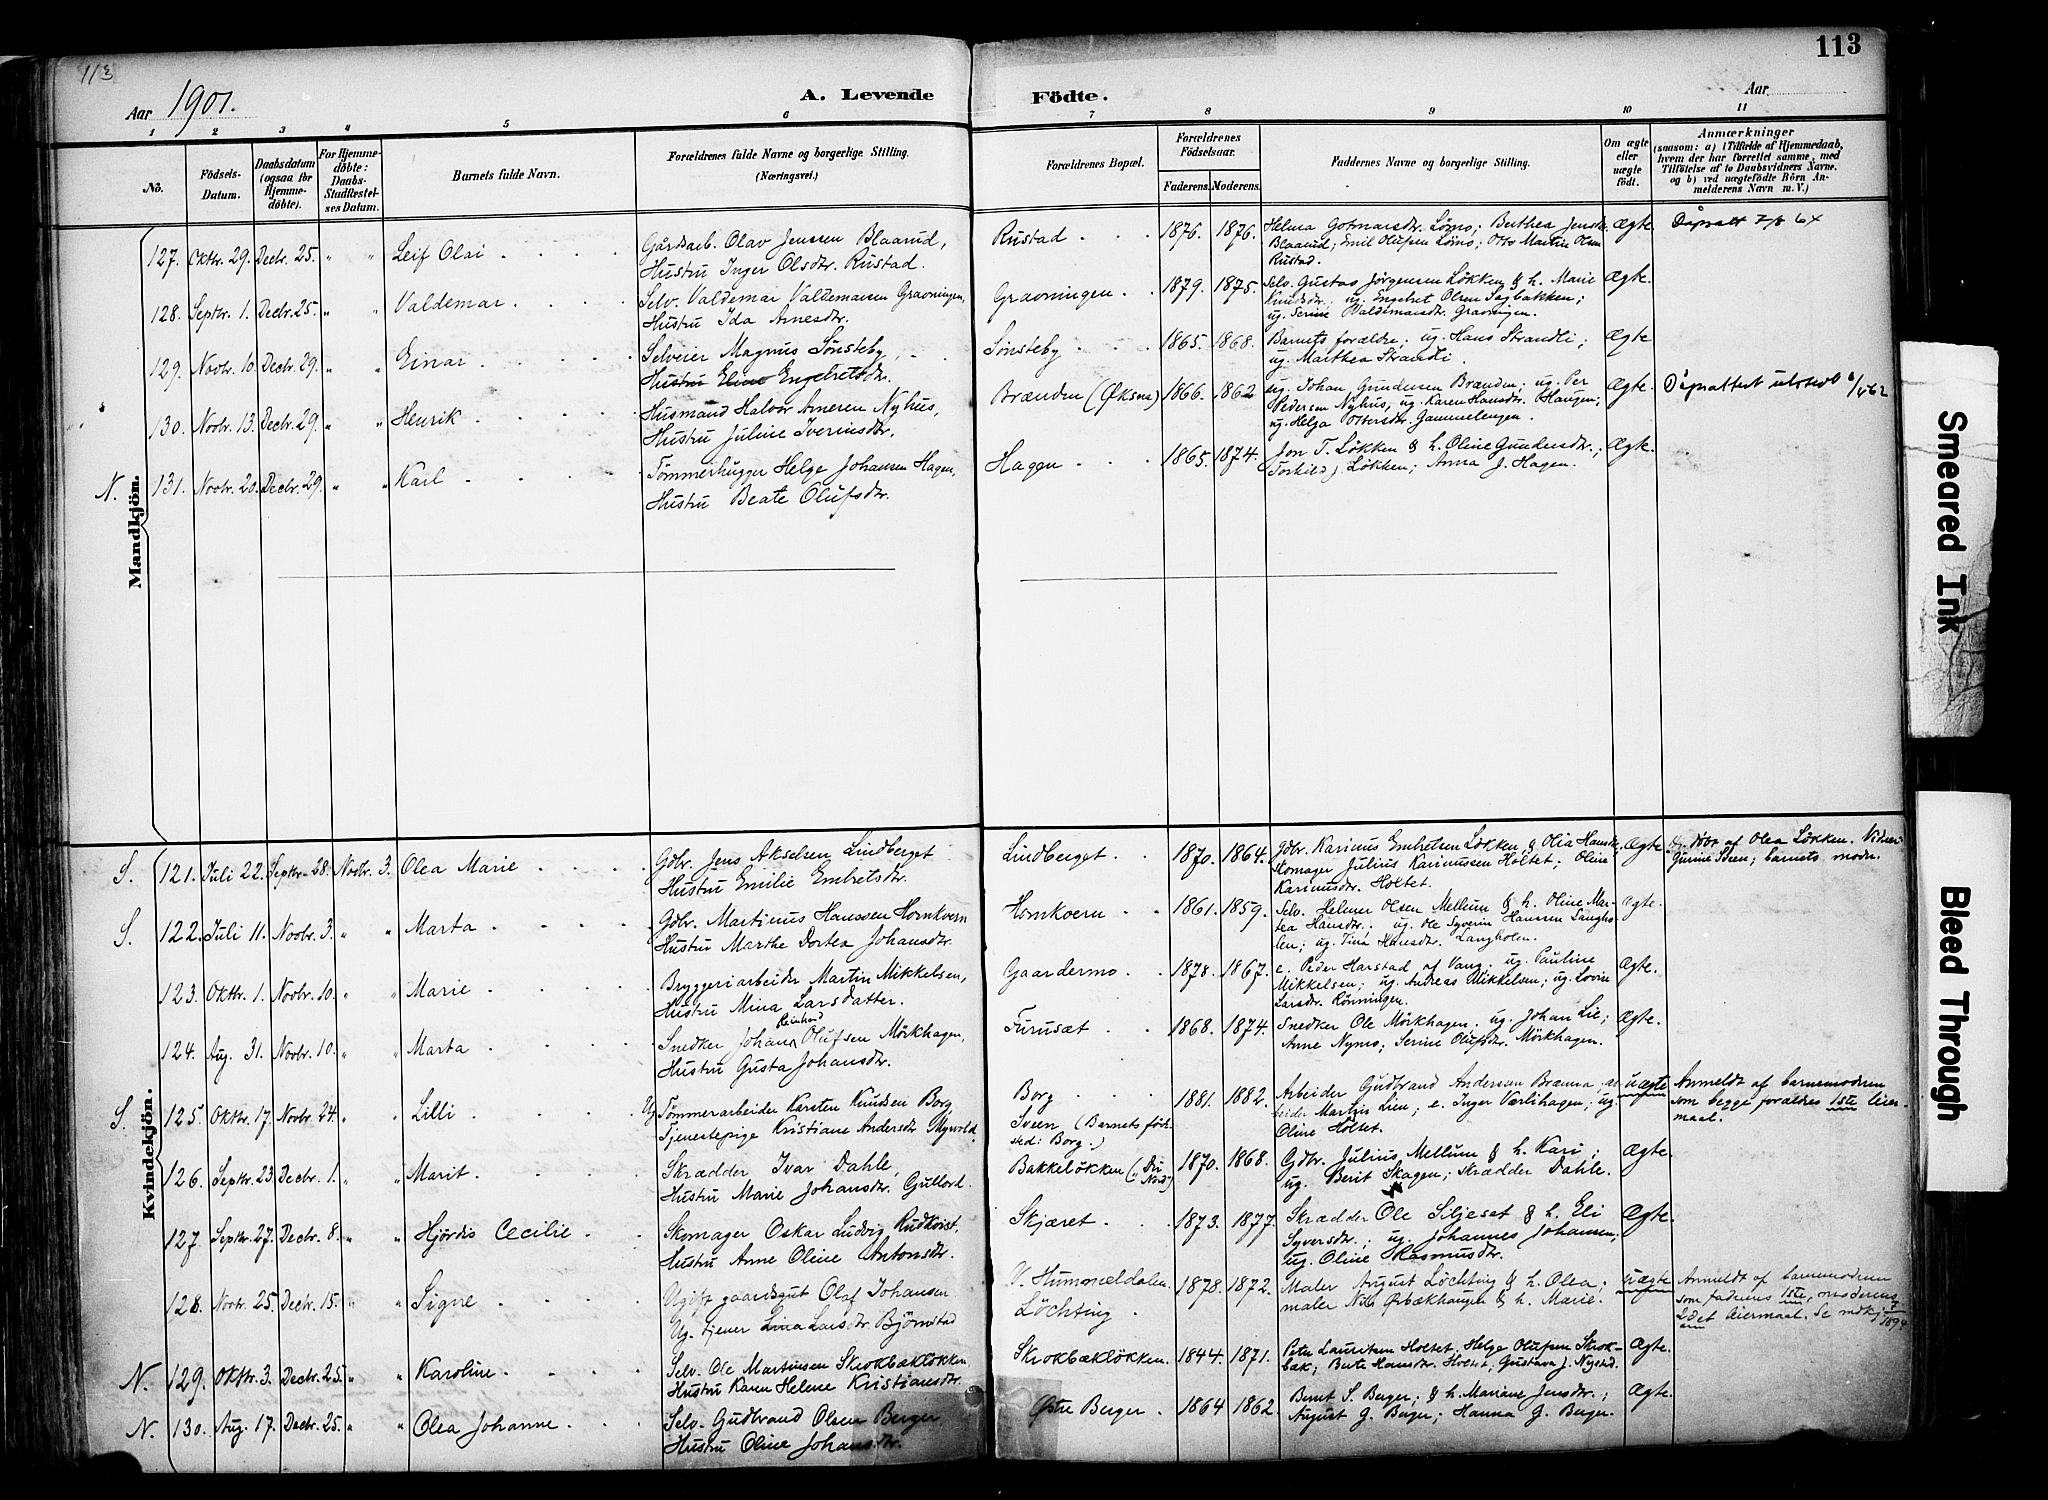 113
113
Aar 1901.
A. Levende Födte.
Aar
1 2 3 4 5 6 7 8 9 10 11
No.
Födsels-Datum.
Daabsdatum (ogsaa for Hjemme-döbte).
For Hjemme-döbte: Daabs-Stadfæstel-ses Datum.
Barnets fulde Navn.
Forældrenes fulde Navne og borgerlige Stilling. (Næringsvei.)
Forældrenes Bopæl.
Forældrenes Födselsaar.
Faderens. Moderens.
Faddernes Navne og borgerlige Stilling.
Om ægte eller uægte födt.
Anmærkninger
(saasom: a) i Tilfælde af Hjemmedaab, hvem der har forrettet samme, med Tilföielse af to Daabsvidners Navne. og b) ved uægtefödte Börn An-melderens Navn m. V.)
Mandkjön.
127. Oktbr. 29. Decbr. 25. " " Leif Olai
Gårdarb. Olav Jenssen Blaarud,
Hustru Inger Olsdtr. Rustad.
Rustad 1876. 1876.
Helma Gotmarsdtr. Lömo; Berthea Jensdtr.
Blaarud; Emil Olufsen Lömo; Otto Martin Olsen
Rustad.
Ægte.
128. Septbr. 1. Decbr. 25. " " Valdemar
Selv. Valdemar Valdemarsen Gravningen,
Hustru Ida Arnesdtr.
Gravningen 1879. 1875.
Selv. Gustav Jörgensen Løkken & h. Marie
Knudsdtr.; ug. Engebret Olsen Sagbakken;
ug. Serine Valdemarsdtr. Gravningen.
Ægte.
129. Novbr. 10. Decbr. 29. " " Einar
Selveier Magnus Sønsteby,
Hustru Eline Engebretsdtr.
Sønsteby 1865. 1868.
Barnets forældre; ug. Hans Strandli;
ug. Marthea Strandli.
Ægte
130. Novbr. 13. Decbr. 29. " " Henrik
Husmand Halvor Arnesen Nyhus,
Hustru Juline Iverinsdtr.
Brænden (Øksna) 1866. 1862
ug. Johan Gundersen Brænden; ug. Per
Pedersen Nyhus, ug. Karen Hansdtr. Haugen;
ug. Helga Ottersdtr. Gammelengen.
Ægte. Dåpsattest utstedt
N. 131. Novbr. 20. Decbr. 29. " " Karl
Tømmerhugger Helge Johansen Hagen,
Hustru Beate Olufsdtr.
Hagen 1865. 1874.
Jon T. Løkken & h. Oline Gundersdtr.;
Torkild J. Løkken; Anna J. Hagen.
Ægte.
Kvindekjön.
S. 121. Juli 22. Septbr. 28. Novbr. 3. Olea Marie
Gdbr. Jens Akselsen Lindberget
Hustru Emilie Embretsdtr.
Lindberget 1870. 1864.
Gdbr. Karinus Embretsen Løkken & Olia Hansdtr.;
Skomager Julius Karinussen Holtet; Oline
Karinusdtr. Holtet.
Ægte
af Olea Løkken. Vidner
barnets moder.
S. 122. Juli 11. Novbr. 3. " " Marta
Gdbr. Martinus Hanssen Hornkvern
Hustru Marthe Dortea Johansdtr.
Hornkvern 1861. 1859.
Selv. Helmer Olsen Mellum & h. Oline Mar-
tea Hansdtr.; ug. Ole Syverin Hanssen Langho-
len; ug. Tina Hansdtr. Langholen.
Ægte.
123. Oktbr. 1. Novbr. 10. " " Marie
Bryggeriarbeider Martin Mikkelsen,
Hustru Mina Larsdatter.
Gaardermo 1878. 1867.
e. Peder Harstad af Vang; ug. Pauline
Mikkelsen; ug. Andreas Mikkelsen; ug. Lovise
Larsdtr. Rönningen.
Ægte.
124. Aug. 31. Novbr. 10. " " Marta
Snedker Johan Reinhard Olufsen Mörkhagen,
Hustru Gusta Johansdtr.
Furusæt 1868. 1874.
Snedker Ole Mörkhagen; ug. Johan Lie;
Anne Nymo; Serine Olufsdtr. Mörkhagen.
Ægte.
S. 125. Oktbr. 17. Novbr. 24. " " Lilli
Ug. Tömmerarbeider Karsten Knudsen Borg
Tjenestepige Kristiane Andersdtr. Myrvold.
Borg
Sveen (Barnets föde-
sted: Borg.)
1881. 1882.
Arbeider Gudbrand Anderssen Brænna, ar-
beider Martin Lien; e. Inger Værlihagen; ug.
Oline Holtet.
uægte
Anmeldt af barnemoderen
som begge forældres 1ste leier-
maal.
126. Septbr. 23. Decbr. 1. " " Marit
Skrædder Ivar Dahle,
Hustru Marie Johansdtr. Gullord.
Bakkeløkken 1870. 1868.
Gdbr. Julius Mellum & h. Kari;
ug. Berit Skagen; skrædder Dahle.
Ægte.
127. Septbr. 27. Decbr. 8. " " Hjördis Cecilie
Skomager Oskar Ludvig Rudkvist,
Hustru Anne Oline Antonsdtr.
Skjæret 1873. 1877.
Skrædder Ole Siljeset & h. Eli
Syversdtr.; ug. Johannes Johansen,
ug. Oline Rasmusdtr.
Ægte.
128. Novbr. 25. Decbr. 15. " " Signe
Ugift gaardsgut Olaf Johansen
Ug. tjener Lina Larsdtr. Björnstad
V. Hummeldalen.
Löchting
1878. 1872.
Maler August Löchting & h. Olea;
maler Nils Ørbækhaugen & h. Marie.
uægte
Anmeldt af barnemoderen
som faderens 1ste, moderens
2det leiermaal. Se mdkj. 7/1894
N. 129. Oktbr. 3. Decbr. 25. " " Karoline
Selv. Ole Martinsen Skrokbækløkken
Hustru Karen Helene Kristiansdtr.
Skrokbækløkken. 1844. 1871.
Peter Lauritsen Holtet, Helge Olufsen Skrok-
bæk; Berte Hansdtr. Holtet, Gustava J. Nystad.
Ægte.
N. 130. Aug. 17. Decbr. 25. " " Olea Johanne
Selv. Gudbrand Olsen Berger
Hustru Oline Johansdtr.
Østre Berger. 1864 1862.
Bernt S. Berger; & h. Mariane Jensdtr.;
August G. Berger; Hanna G. Berger.
Ægte.
Smeared Ink
Bleed Through